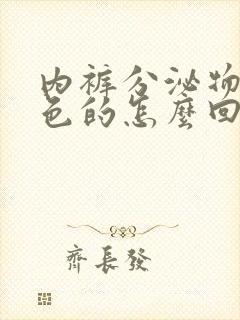 内裤分泌物
色的怎麼回
齊長發